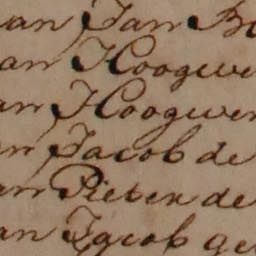 an Jan B
an Hoogwe
an Hoogwer
an Jacob de
an Pieter de
an Jacob ge